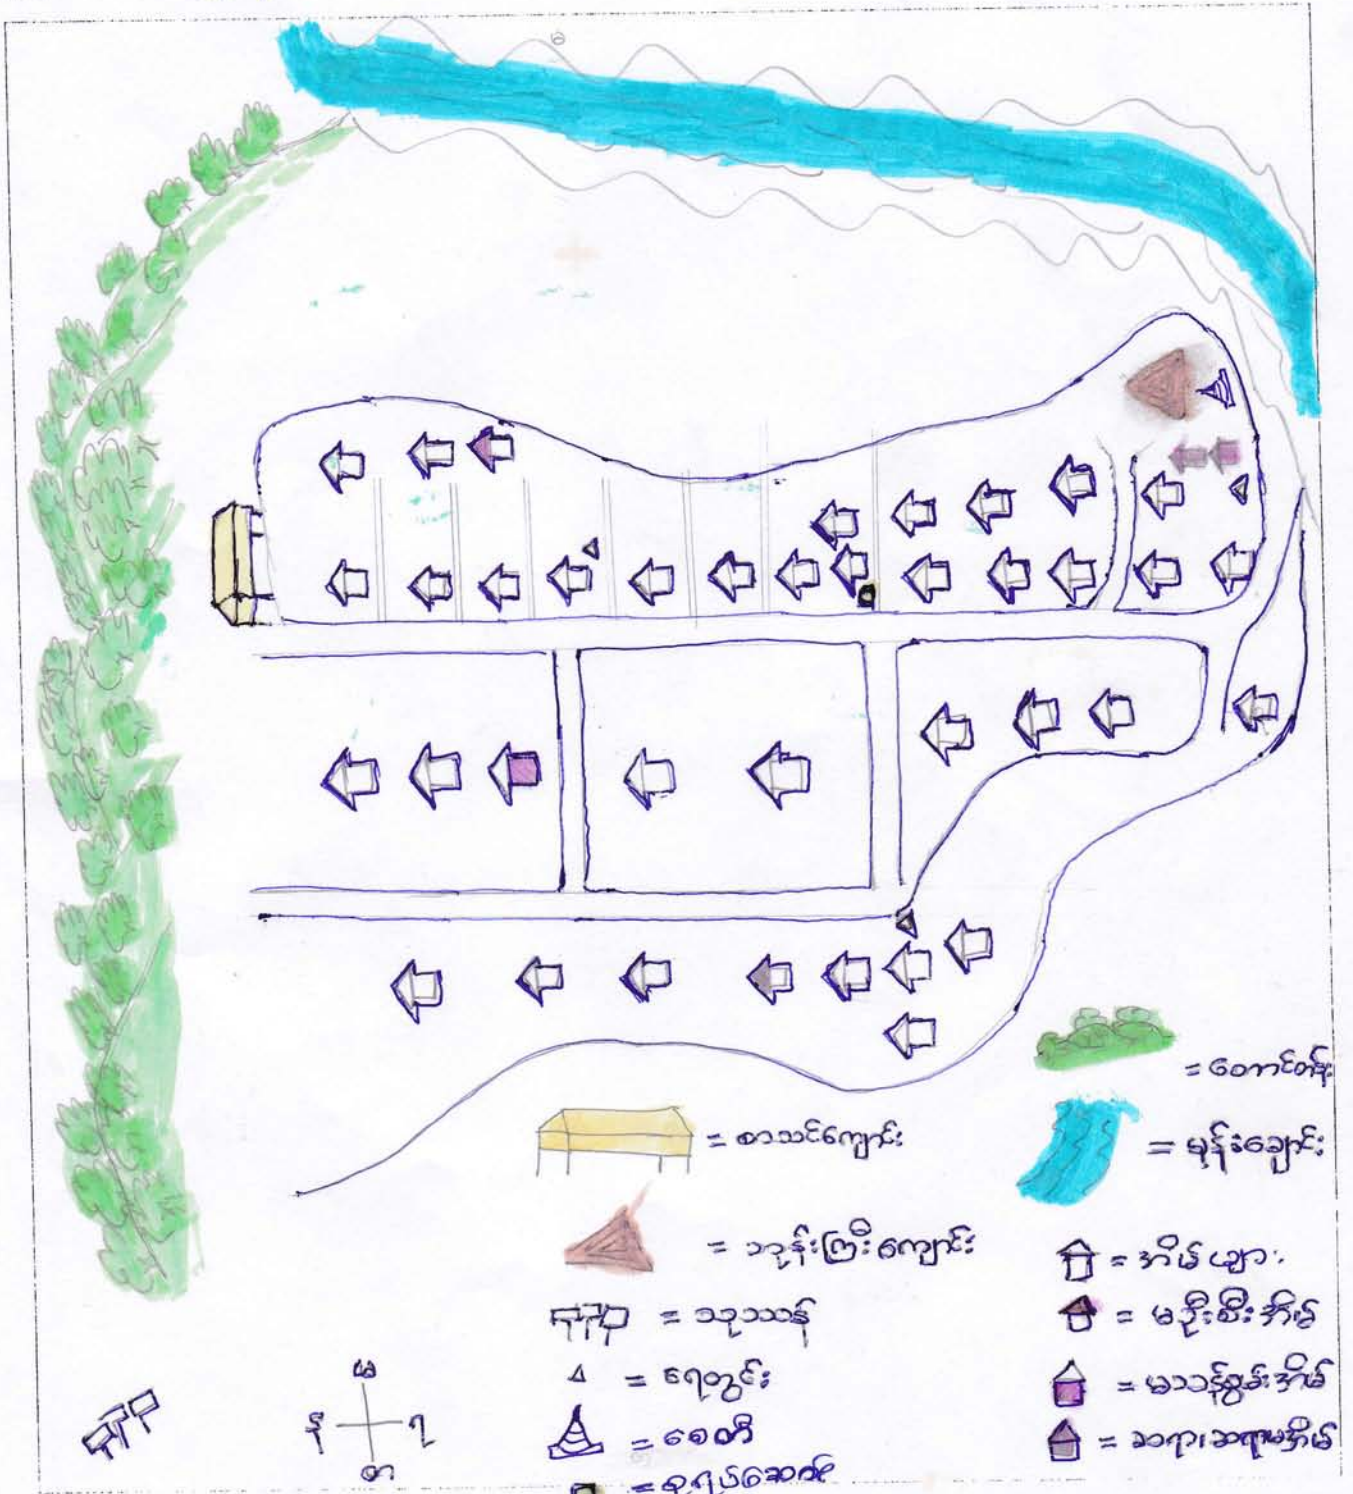 = တောင်တန်း
= စာသင်ကျောင်း
= မုန်းချောင်း
= ဘုန်းကြီးကျောင်း
= အိမ်များ
= သုဿာန်
= မဦးစီးအိမ်
= ရေတွင်း
= မသန်စွမ်းအိမ်
= စေတီ
= ဆရာ၊ဆရာမအိမ်